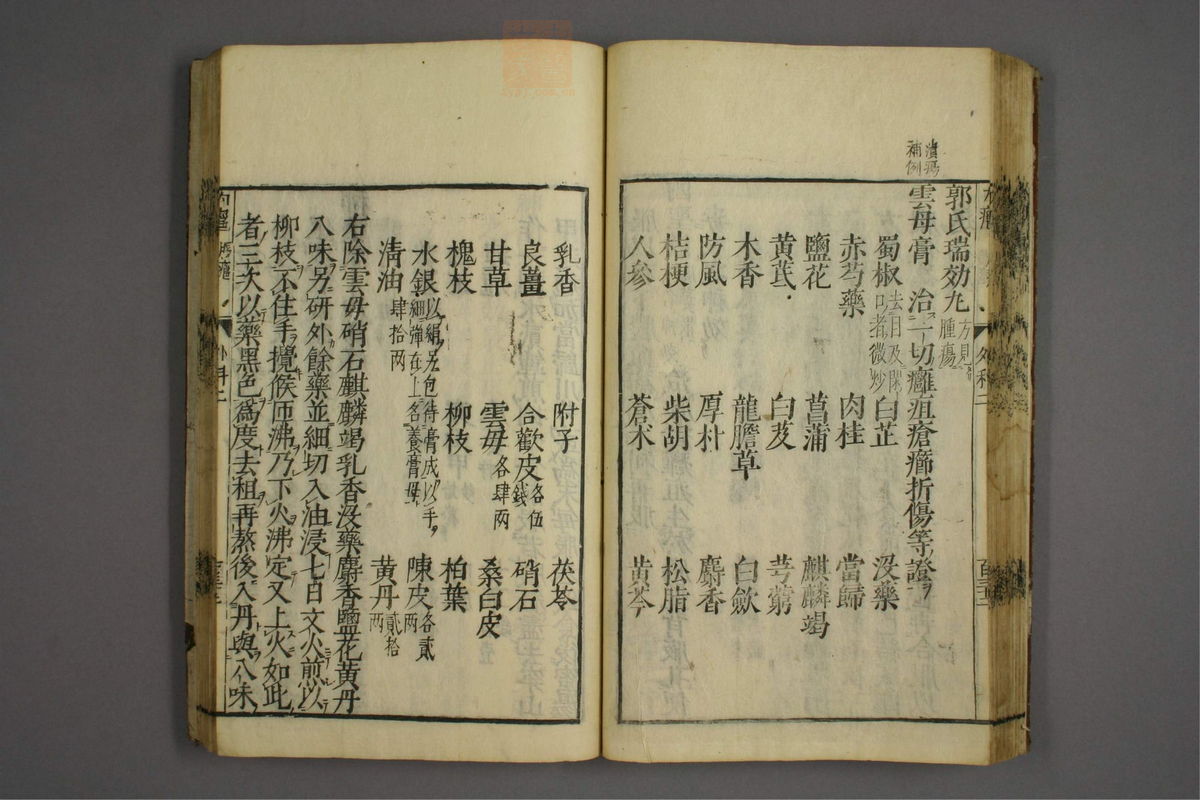 潰瘍
補例
郭氏瑞効丸 方見
腫瘍
雲母膏 治一切癰疽瘡癤折傷等證
蜀椒 去目及閉
口者微炒 白芷 没藥
赤芍藥 肉桂 當歸
鹽花 菖蒲 麒麟竭
黄芪 白芨 芎藭
木香 龍膽草 白斂
防風 厚朴 麝香
桔梗 柴胡 松脂
人參 蒼术 黄芩
乳香 附子 茯苓
良薑 合歡皮 各伍
錢 硝石
甘草 雲母 各肆兩 桑白皮
槐枝 柳枝 柏葉
水銀 以絹另包待膏成以手
細彈在上名養膏母 陳皮 各貳
兩
清油 肆拾兩 黄丹 貳拾
兩
右除雲母硝石麒麟竭乳香没藥麝香鹽花黄丹
八味另研外餘藥並細切入油浸七日文火煎以
柳枝不住手攪候匝沸乃下火沸定又上火如此
者三次以藥黑色爲度去粗再熬後入丹與八味